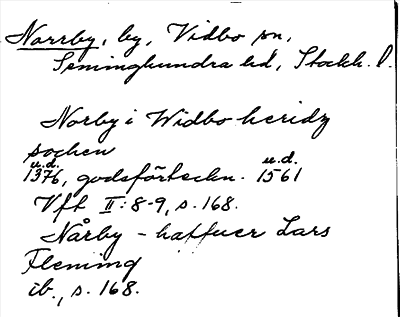 Norrby, by, Vidbo sn,
Seminghundra hd, Stockh. l.
Norby i Widbo heridz
sochen
u.d. u.d.
1376, godsförteckn. 1561
Vft II:8-9, s. 168.
Nårby - haffuer Lars
Fleming
ib., s. 168.